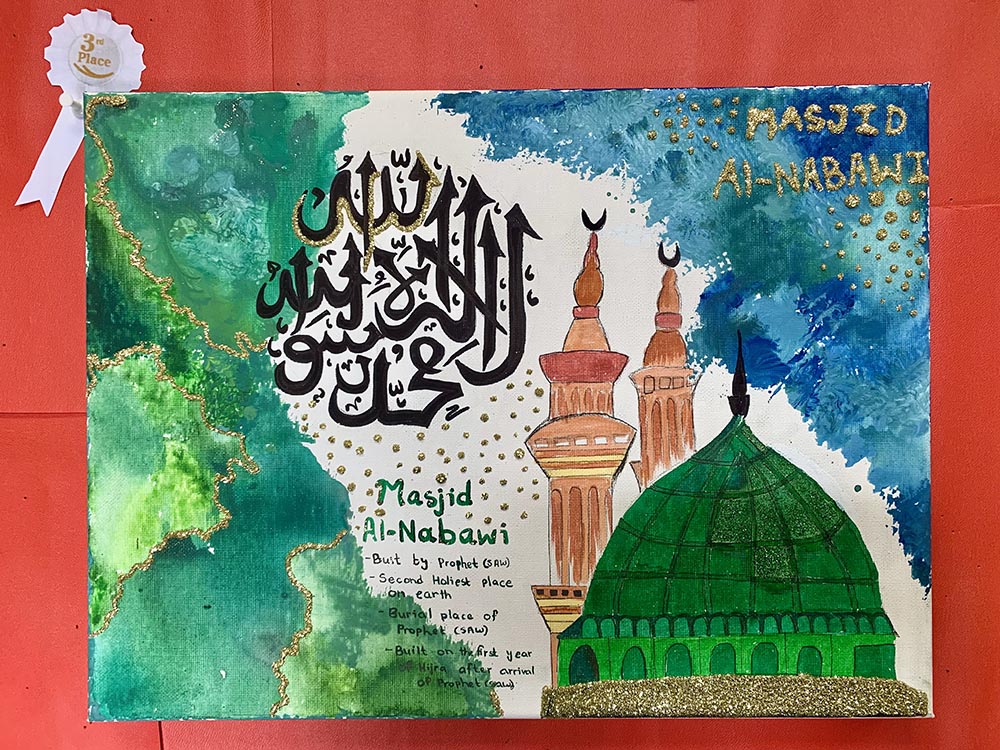 3rd
Place
MASJID
Al-NABAWI
لا اله الا الله
محمد رسول الله
Masjid
Al-Nabawi
-Buit by Prophet (SAW)
- Second Holiest place
on earth
- Burial place of
Prophet (SAW)
- Built on the first year
of Hijra after arrival
of Prophet (saw)